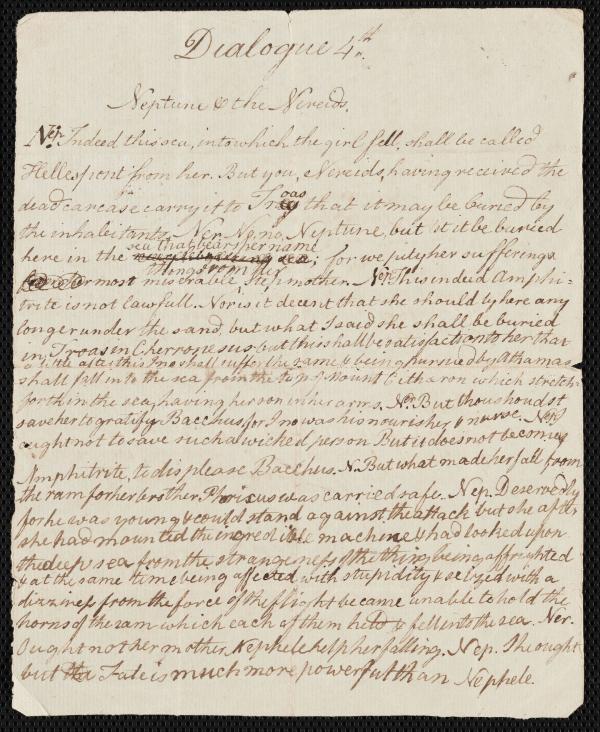 Dialogue 4th.
Neptune & the Nereids.
Nep. Indeed this sea, into which the girl fell, shall be called
Hellespont from her. But you, Nereids, having received the
dead carcase carry it to Troas that it may be buried by
the inhabitants. Ner. No, no, Neptune, but let it be buried
sea that bears her name
here in the neighbouring sea; for we pity her sufferings
things from her
most miserable stepmother. Nep. This indeed Amphi-
trite is not lawfull. Nor is it decent that she should ly here any
longer under the sand, but what I said she shall be buried
in Troas in Cherronesus but this shall be satisfaction to her that
a little after this Ino shall suffer the same & being pursued by Athamas
shall fall into the sea from the top of mount Citharon which stretch-
forth in the sea, having her son in her arms. Ner. But thou shoudst
save her to gratify Bacchus, for Ino was his nourisher & nurse. Nep. I
ought not to save such a wicked person But it does not become
Amphitrite, to displease Bacchus. N. But what made her fall from
the ram for her brother Phrixus was carried safe. Nep. Deservedly
for he was young & could stand against the attack but she after
she had mounted the incredible machine & had looked upon
the deep sea from the strangeness of the thing being affrighted
& at the same time being affected with stupidity & seized with a
dizziness from the force of the flight became unable to hold the
horns of the ram which each of them held & fell into the sea. Ner.
Ought not her mother Nephele help her falling. Nep. She ought
but the Fate is much more powerful than Nephele.